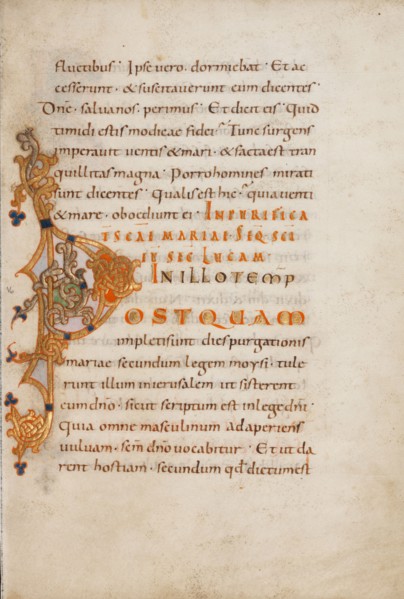 fluctibus· Ipse vero· dormiebat· Et ac
cesserunt· & suscitaverunt eum dicentes
Dn̄e· salvanos· perimus· Et dicit eis· Quid
timidi estis modicae fidei· Tunc surgens
imperavit ventis & mari· & facta est tran
quillitas magna· Porro homines mirati
sunt dicentes· Qualis est hic· quia venti
& mare· oboediunt ei· IN PURIFICA
T S̄C̄AE MARIAE· SEQ̄ S̄C̄I
EV̄ SEC̄ LUCAM·
IN ILLO TEMP̄
POSTQUAM
impleti sunt dies purgationis
mariae secundum legem moysi· tule
runt illum in ierusalem ut sisterent
eum dn̄o· sicut scriptum est in lege dn̄i·
Quia omne masculinum adaperiens
vulvam· sc̄m dn̄o vocabitur· Et ut da
rent hostiam· secundum qd̄ dictum est